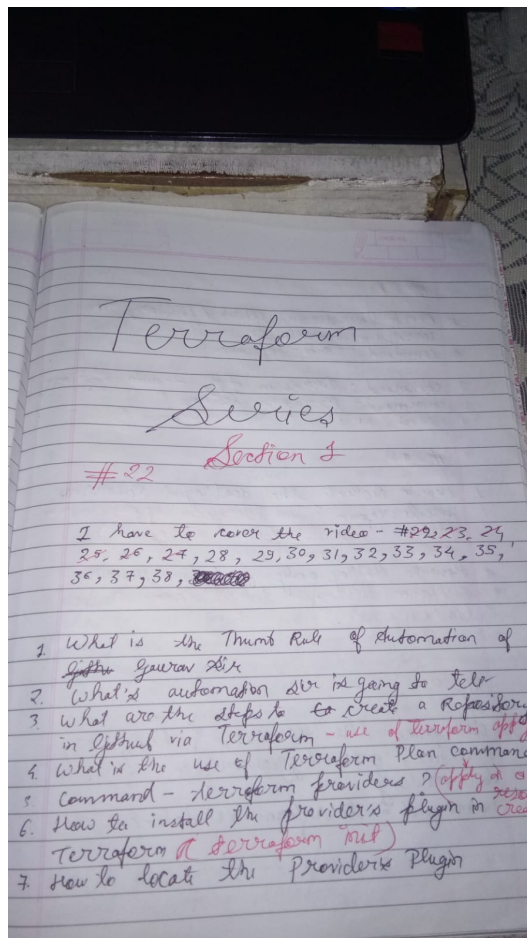 Terraform
Series
Section 1
#22
I have to cover the video - #22, 23, 24,
25, 26, 27, 28, 29, 30, 31, 32, 33, 34, 35,
36, 37, 38,
1. What is the Thumb Rule of Automation of
Gaurav Sir
2. What's automation Sir is going to tell
3. What are the steps to create a Repository
in Github via Terraform - use of terraform apply
4. What is the use of Terraform Plan command
5. Command - terraform providers? (apply
6. How to install the provider's plugin in
Terraform (terraform init)
7. How to locate the Providers Plugin